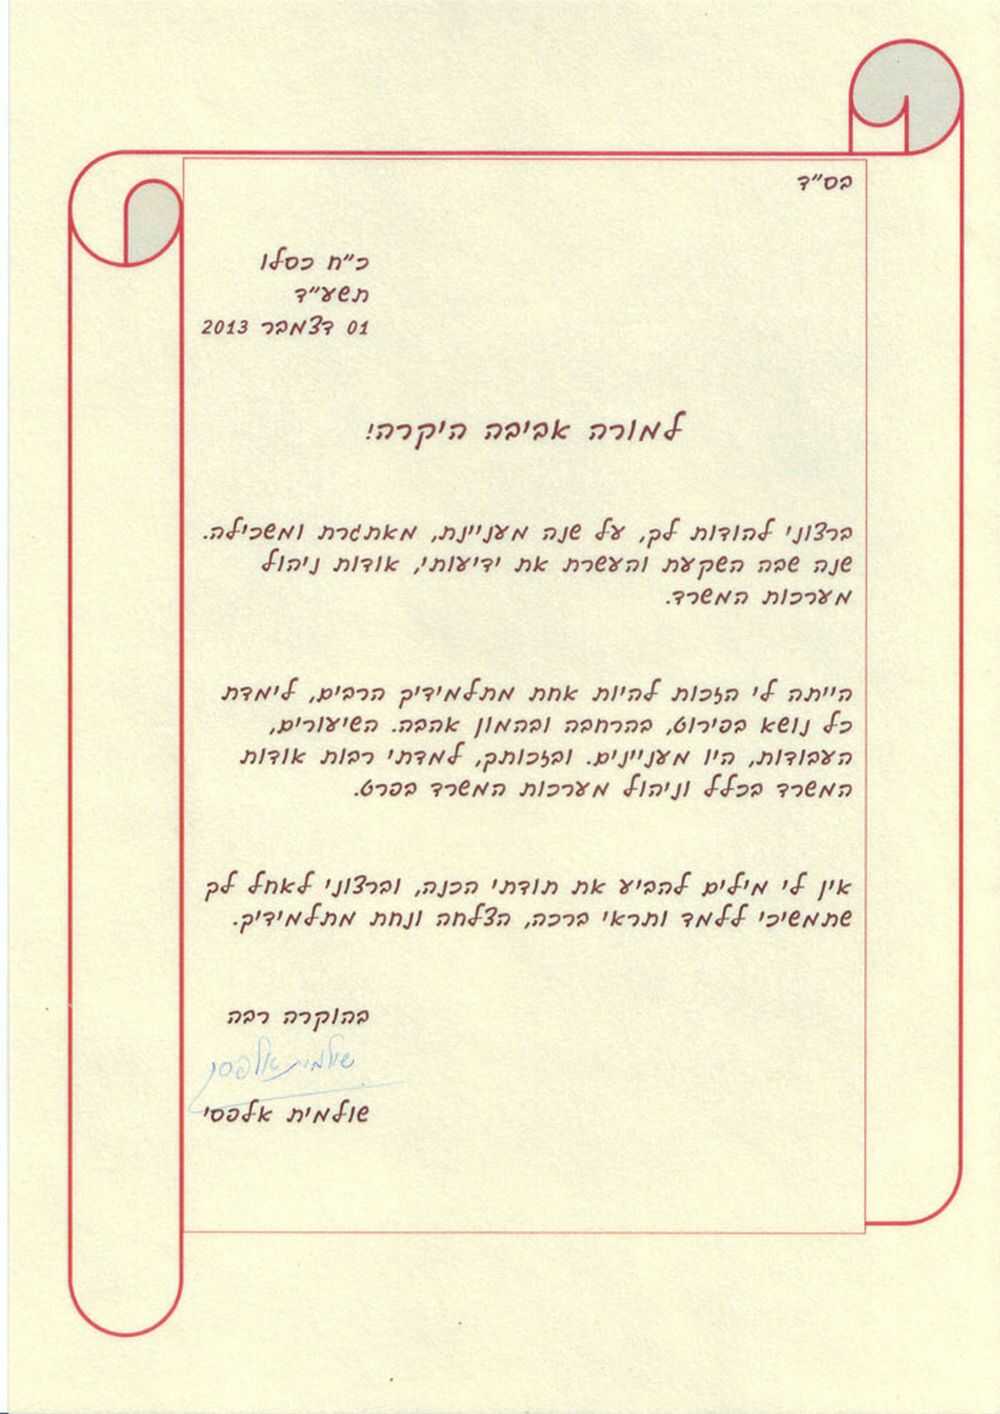 בס"ד
כ"ח כסלו
תשע"ד
01 דצמבר 2013
למורה אביבה היקרה!
ברצוני להודות לך, על שנה מעניינת, מאתגרת ומשכילה.
שנה שבה השקעת והעשרת את ידיעותי, אודות ניהול
מערכות המשרד.
הייתה לי הזכות להיות אחת מתלמידיך הרבים, לימדת
כל נושא בפירוט, בהרחבה ובהמון אהבה. השיעורים,
העבודות, היו מעניינים. ובזכותך, למדתי רבות אודות
המשרד בכלל וניהול מערכות המשרד בפרט.
אין לי מילים להביע את תודתי הכנה, וברצוני לאחל לך
שתמשיכי ללמד ותראי ברכה, הצלחה ונחת מתלמידיך.
בהוקרה רבה
שולמית אלפסי
שולמית אלפסי